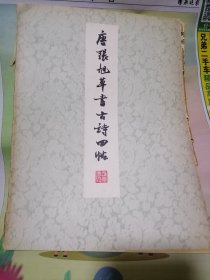 唐張旭草書古詩四帖
兄弟二手车